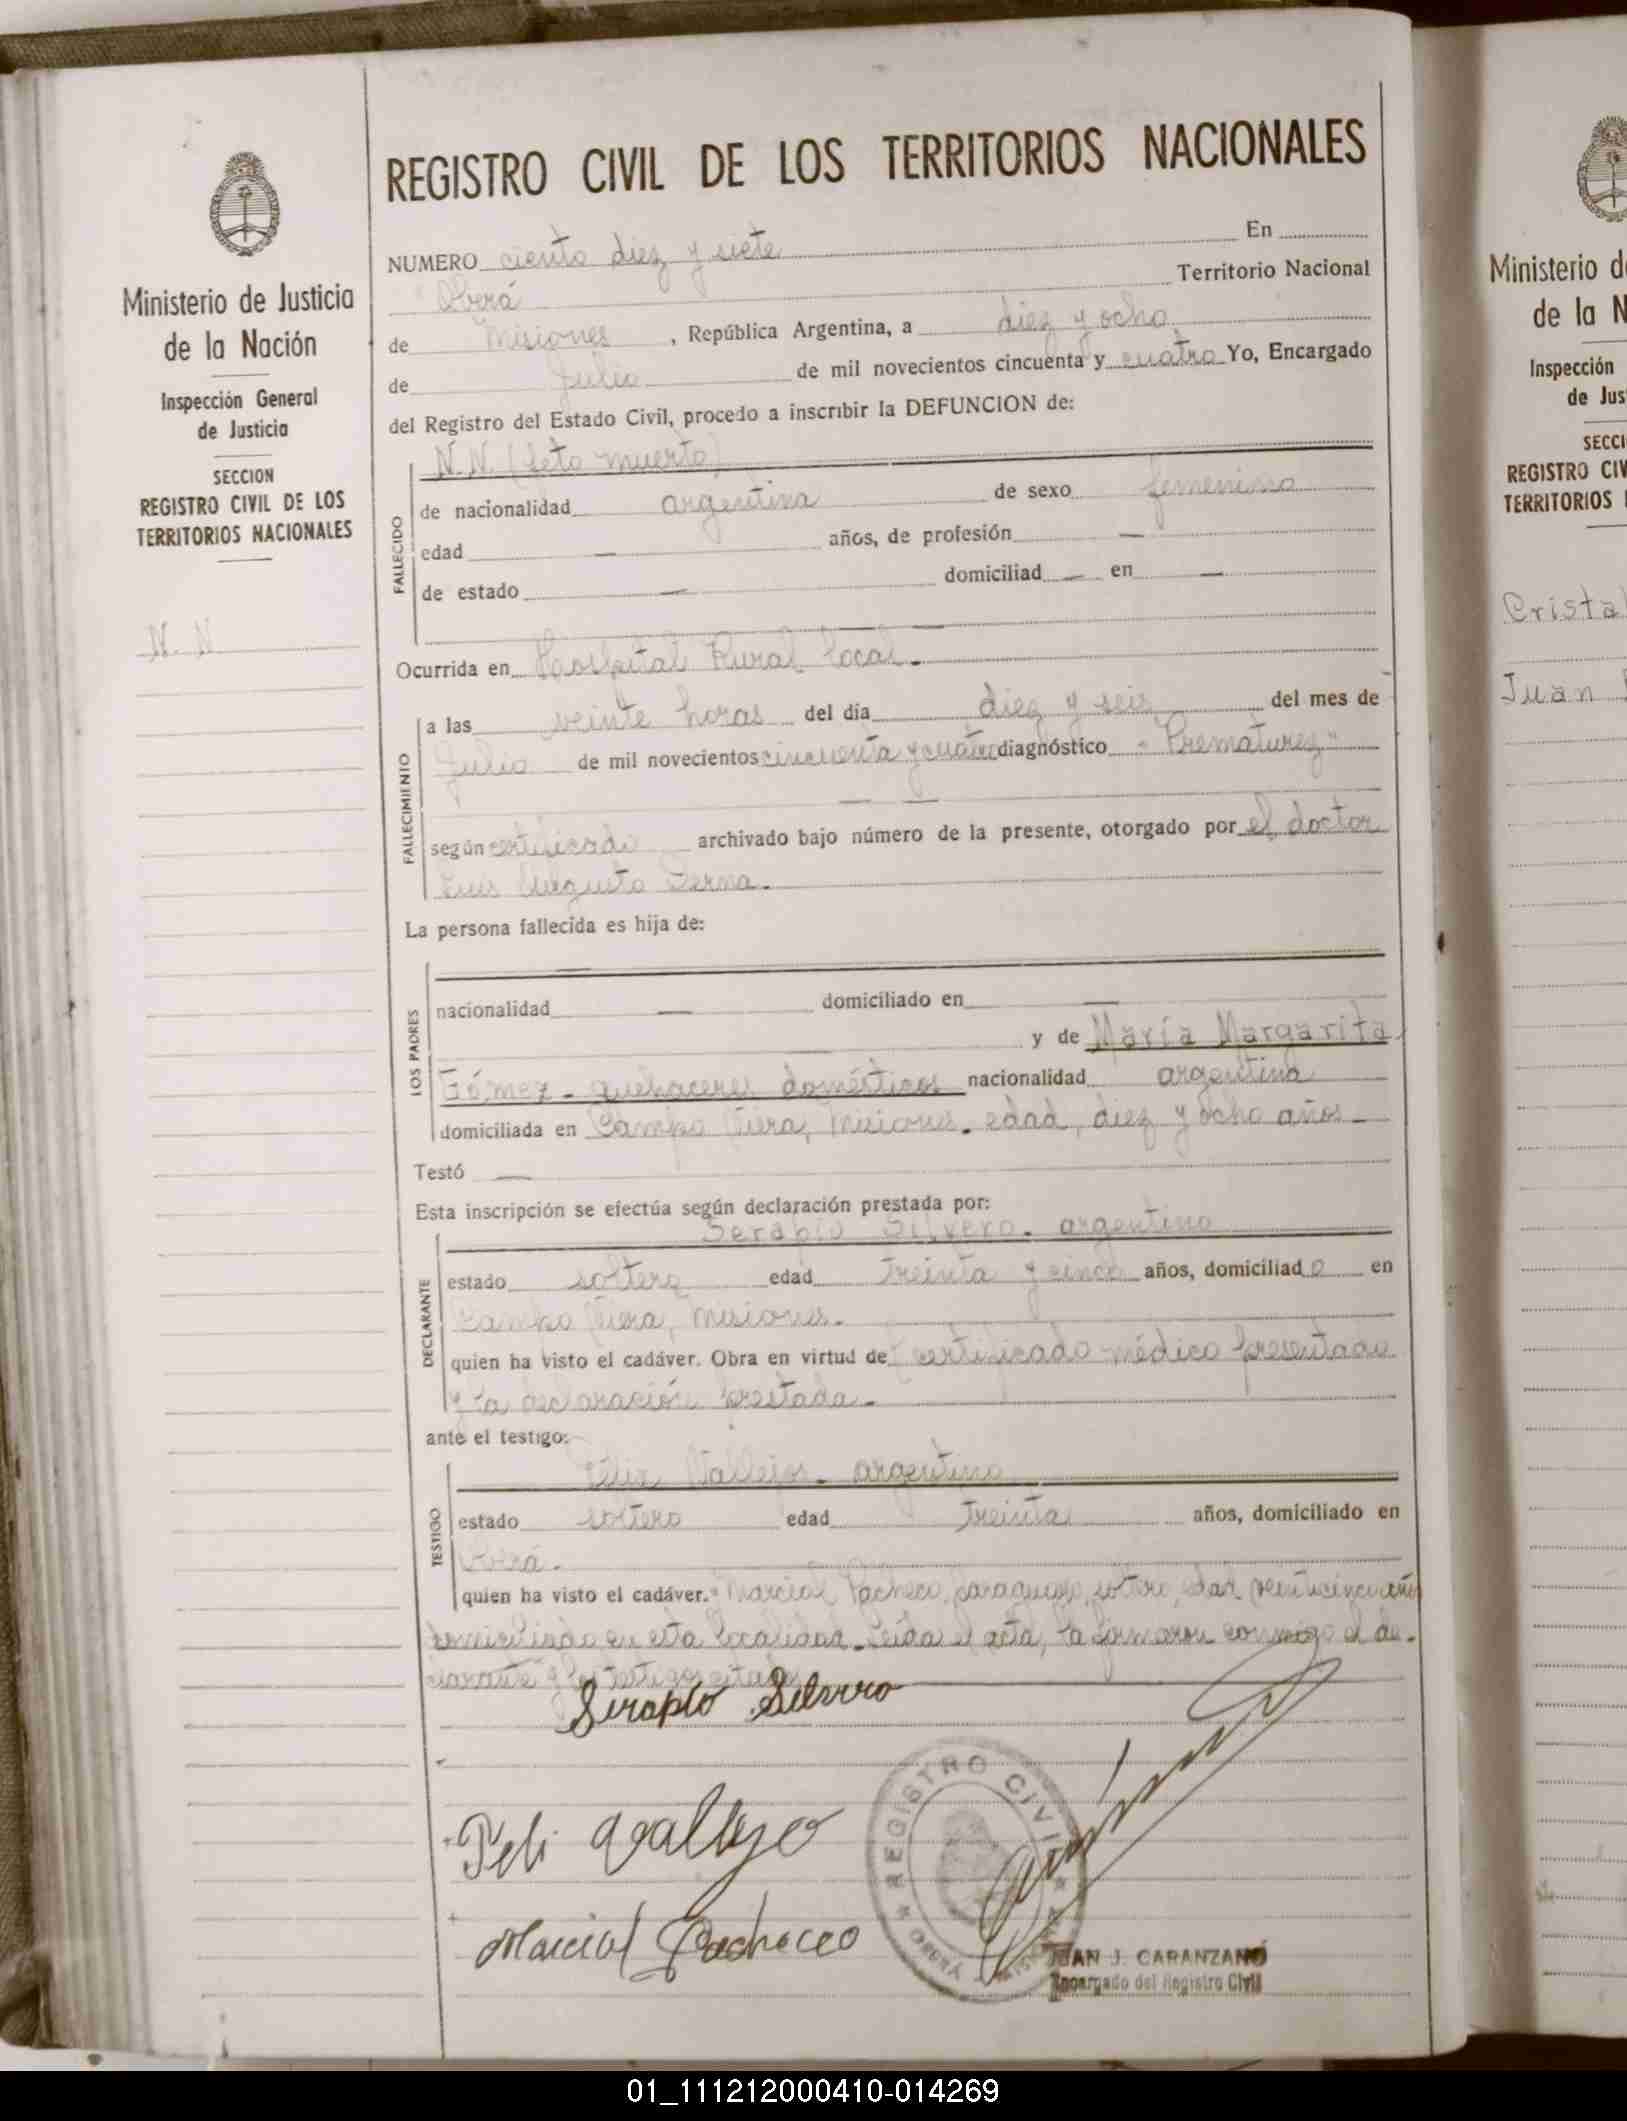 REGISTRO CIVIL DE LOS TERRITORIOS NACIONALES
Ministerio de Justicia
de la Nación
Inspección General
de Justicia
SECCION
REGISTRO CIVIL DE LOS
TERRITORIOS NACIONALES
N. N
NUMERO ciento diez y siete En
Oberá Territorio Nacional
de Misiones, República Argentina, a diez y ocho
de Julio de mil novecientos cincuenta y cuatro Yo, Encargado
del Registro del Estado Civil, procedo a inscribir la DEFUNCION de:
N.N. (feto muerto)
FALLECIDO
de nacionalidad argentina de sexo femenino
edad — años, de profesión —
de estado — domiciliad — en —
—
Ocurrida en Hospital Rural local.
FALLECIMIENTO
a las veinte horas del día diez y seis del mes de
Julio de mil novecientos cincuenta y cuatro diagnóstico "Prematurez"
— —
según certificado archivado bajo número de la presente, otorgado por el doctor
Luis Augusto Serna.
La persona fallecida es hija de:
LOS PADRES
—
nacionalidad — domiciliado en —
y de María Margarita
Gómez - quehaceres domésticos nacionalidad argentina
domiciliada en Campo Viera, Misiones. edad, diez y ocho años-
Testó —
Esta inscripción se efectúa según declaración prestada por:
DECLARANTE
Serapio Silvero. argentino
estado soltero edad treinta y cinco años, domiciliado en
Campo Viera, Misiones.
quien ha visto el cadáver. Obra en virtud de certificado médico presentado
y la declaración prestada.
ante el testigo:
TESTIGO
Félix Vallejos. argentino
estado soltero edad treinta años, domiciliado en
Oberá.
quien ha visto el cadáver. Marcial Pacheco, paraguayo, soltero, edad veinticinco años
domiciliado en esta localidad. Leída el acta, la firmaron conmigo el de-
clarante y los testigos citados
Serapio Silvero
Feli Vallejo
Marcial Pacheco
REGISTRO CIVIL
OBERÁ
JUAN J. CARANZANO
Encargado del Registro Civil
Ministerio d
de la N
Inspección
de Jus
SECCI
REGISTRO CIV
TERRITORIOS
Cristal
Juan
01_111212000410-014269